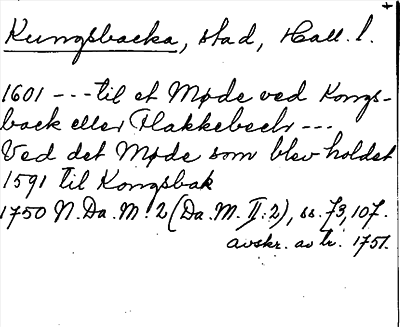 Kungsbacka, stad, Hall. l.
1601 --- til et Møde ved Kongs-
back eller Flakkebech ---
Ved det Møde som blev holdet
1591 til Kongsbak
1750 N. Da. M. 2 (Da. M. II:2), ss. 73, 107.
avskr. av tr. 1751.